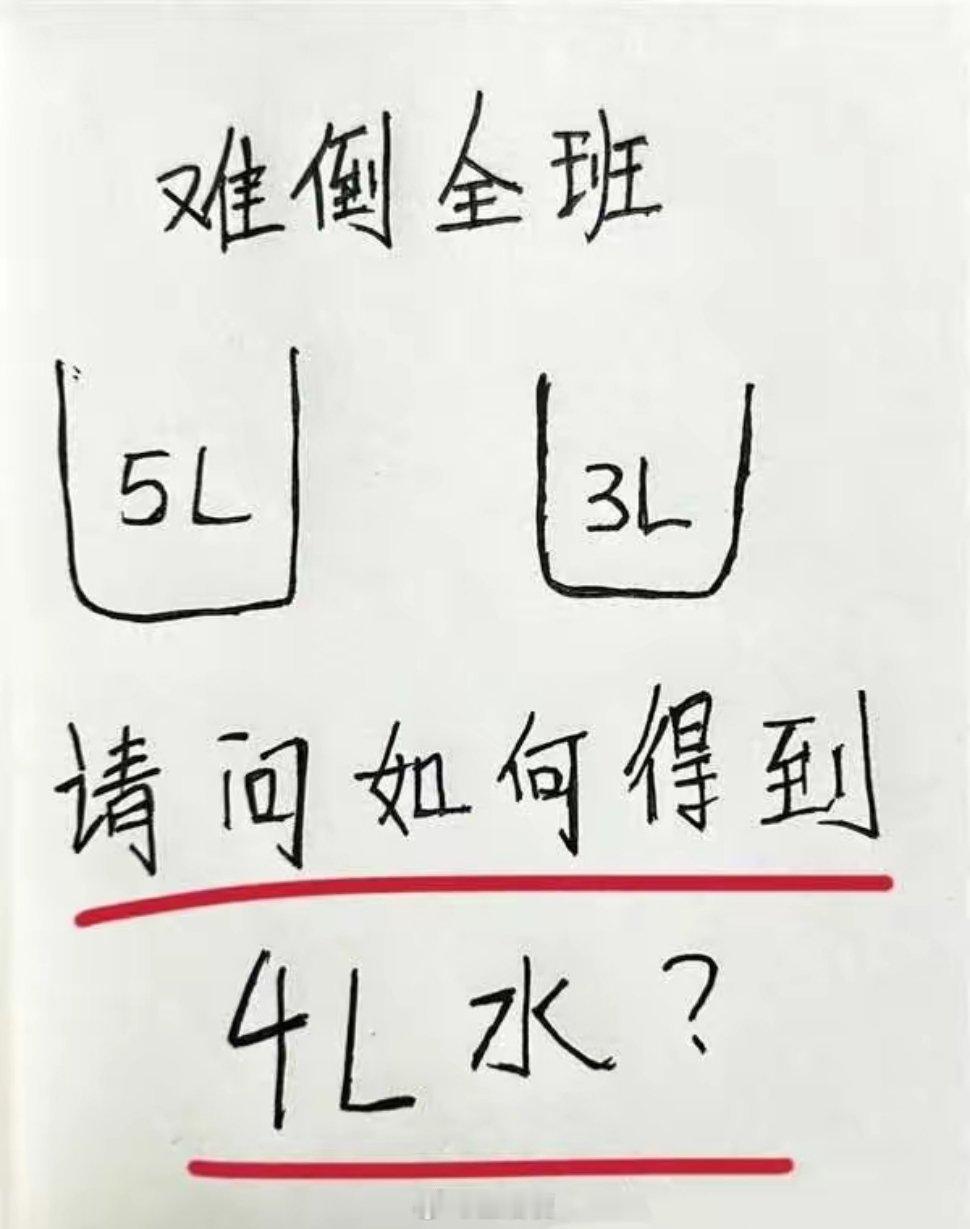 难倒全班
5L 3L
请问如何得到
4L水?